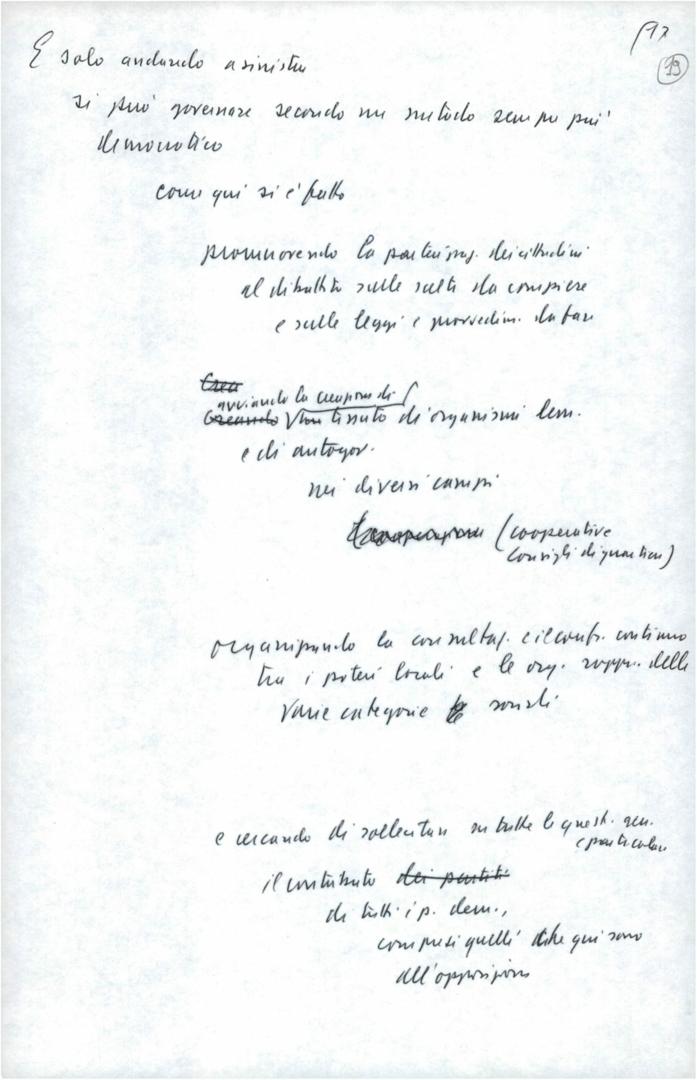 19
E solo andando a sinistra
si può governare secondo un metodo sempre più
democratico
come qui si è fatto
promuovendo la partecipaz. dei cittadini
al dibattito sulle scelte da compiere
e sulle leggi e provvedim. da fare
Crea
avviando la creazione di
Creando un tessuto di organismi dem.
e di autogov.
nei diversi campi
(cooperative
consigli di quartiere)
organizzando la consultaz. e il confr. continuo
tra i poteri locali e le org. rappr. delle
varie categorie sociali
e cercando di sollecitare su tutte le quest. gen.
e particolari
il contributo dei partiti
di tutti i p. dem.,
compresi quelli che qui sono
all'opposizione